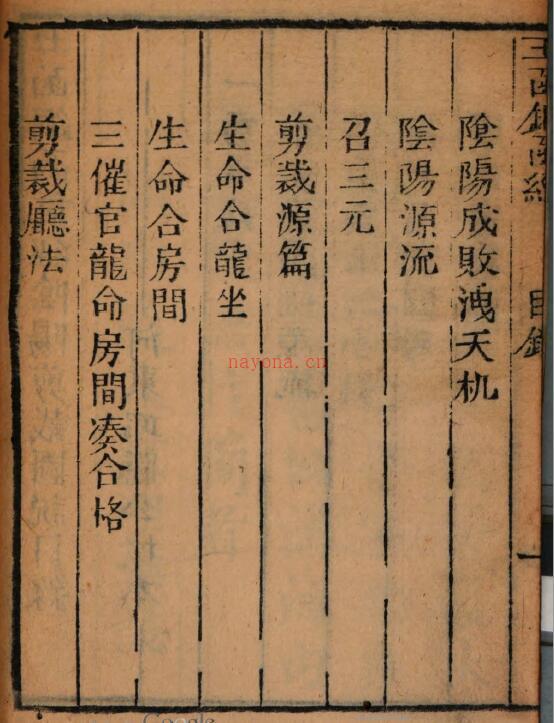 目錄
一
陰陽成敗洩天机
陰陽源流
召三元
剪裁源篇
生命合龍坐
生命合房間
三催官龍命房間凑合格
剪裁廳法
nayona.cn
Google